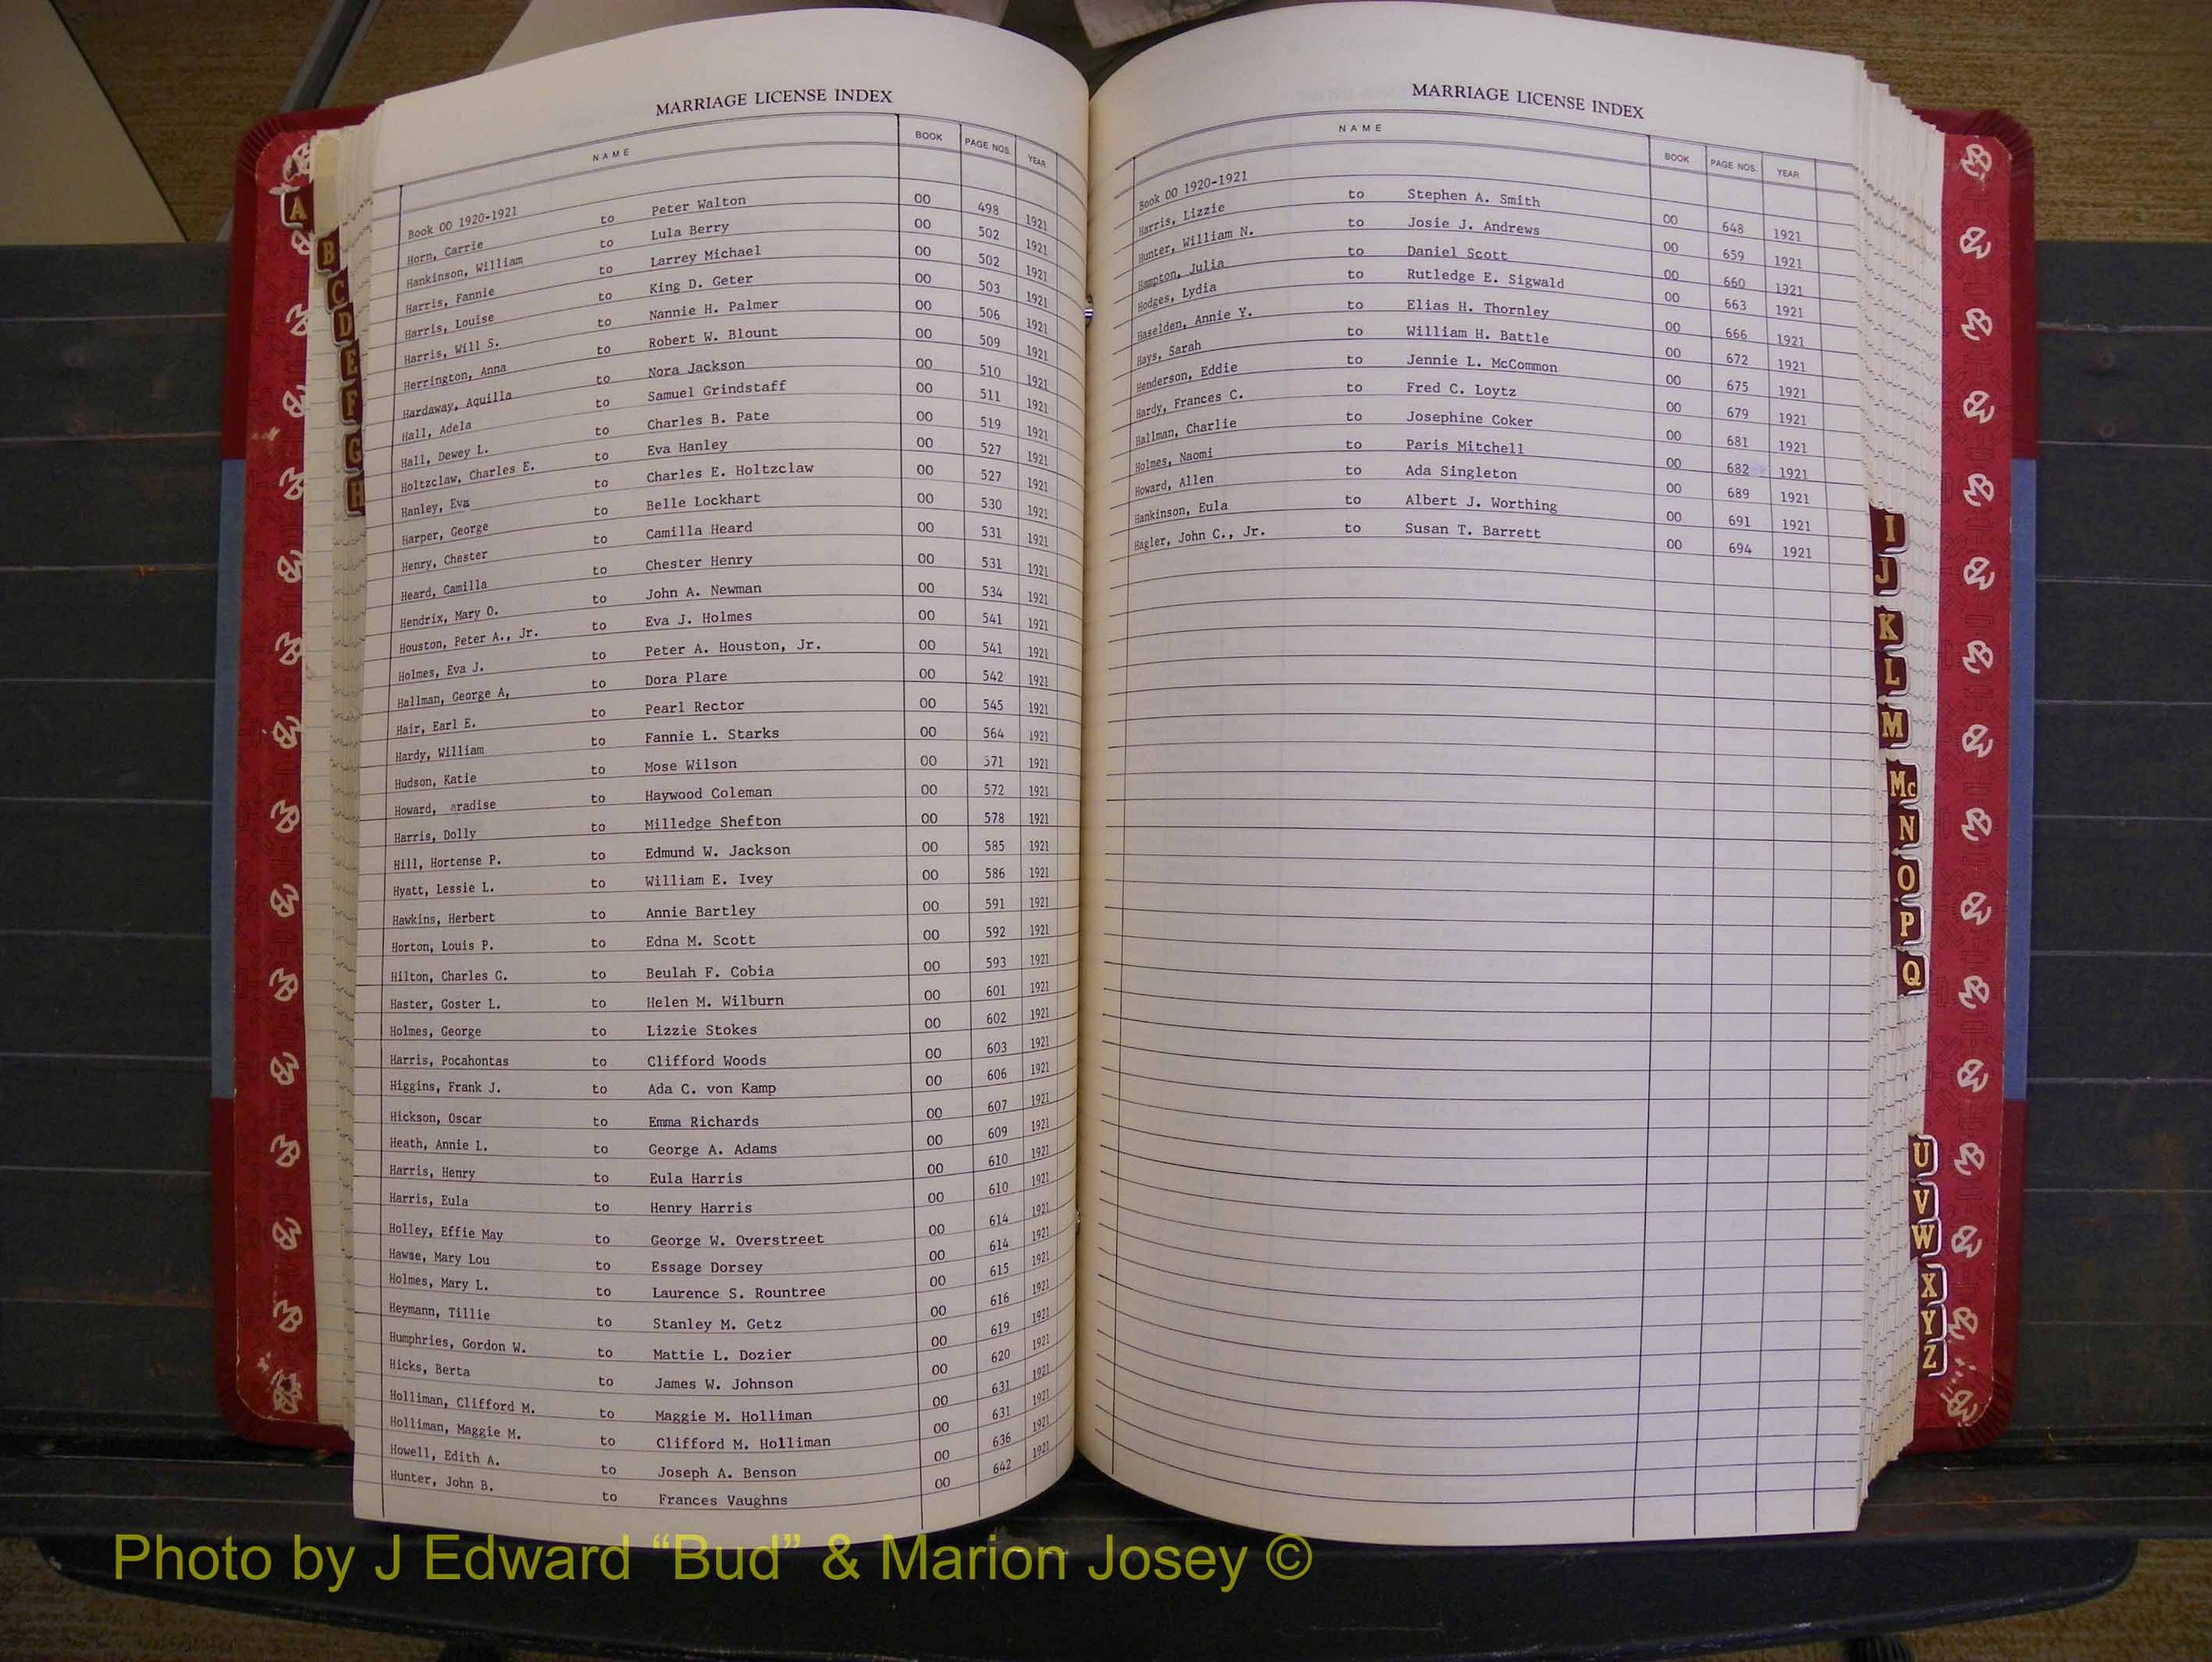 MARRIAGE LICENSE INDEX
NAME BOOK PAGE NOS. YEAR
Book 00 1920-1921
Horn, Carrie to Peter Walton 00 498 1921
Hankinson, William to Lula Berry 00 502 1921
Harris, Fannie to Larrey Michael 00 502 1921
Harris, Louise to King D. Geter 00 503 1921
Harris, Will S. to Nannie H. Palmer 00 506 1921
Herrington, Anna to Robert W. Blount 00 509 1921
Hardaway, Aquilla to Nora Jackson 00 510 1921
Hall, Adela to Samuel Grindstaff 00 511 1921
Hall, Dewey L. to Charles B. Pate 00 519 1921
Holtzclaw, Charles E. to Eva Hanley 00 527 1921
Hanley, Eva to Charles E. Holtzclaw 00 527 1921
Harper, George to Belle Lockhart 00 530 1921
Henry, Chester to Camilla Heard 00 531 1921
Heard, Camilla to Chester Henry 00 531 1921
Hendrix, Mary O. to John A. Newman 00 534 1921
Houston, Peter A., Jr. to Eva J. Holmes 00 541 1921
Holmes, Eva J. to Peter A. Houston, Jr. 00 541 1921
Hallman, George A, to Dora Plare 00 542 1921
Hair, Earl E. to Pearl Rector 00 545 1921
Hardy, William to Fannie L. Starks 00 564 1921
Hudson, Katie to Mose Wilson 00 571 1921
Howard, aradise to Haywood Coleman 00 572 1921
Harris, Dolly to Milledge Shefton 00 578 1921
Hill, Hortense P. to Edmund W. Jackson 00 585 1921
Hyatt, Lessie L. to William E. Ivey 00 586 1921
Hawkins, Herbert to Annie Bartley 00 591 1921
Horton, Louis P. to Edna M. Scott 00 592 1921
Hilton, Charles G. to Beulah F. Cobia 00 593 1921
Haster, Goster L. to Helen M. Wilburn 00 601 1921
Holmes, George to Lizzie Stokes 00 602 1921
Harris, Pocahontas to Clifford Woods 00 603 1921
Higgins, Frank J. to Ada C. von Kamp 00 606 1921
Hickson, Oscar to Emma Richards 00 607 1921
Heath, Annie L. to George A. Adams 00 609 1921
Harris, Henry to Eula Harris 00 610 1921
Harris, Eula to Henry Harris 00 610 1921
Holley, Effie May to George W. Overstreet 00 614 1921
Hawse, Mary Lou to Essage Dorsey 00 614 1921
Holmes, Mary L. to Laurence S. Rountree 00 615 1921
Heymann, Tillie to Stanley M. Getz 00 616 1921
Humphries, Gordon W. to Mattie L. Dozier 00 619 1921
Hicks, Berta to James W. Johnson 00 620 1921
Holliman, Clifford M. to Maggie M. Holliman 00 631 1921
Holliman, Maggie M. to Clifford M. Holliman 00 631 1921
Howell, Edith A. to Joseph A. Benson 00 636 1921
Hunter, John B. to Frances Vaughns 00 642 1921
MARRIAGE LICENSE INDEX
NAME BOOK PAGE NOS. YEAR
Book 00 1920-1921
Harris, Lizzie to Stephen A. Smith 00 648 1921
Hunter, William N. to Josie J. Andrews 00 659 1921
Hampton, Julia to Daniel Scott 00 660 1921
Hodges, Lydia to Rutledge E. Sigwald 00 663 1921
Haselden, Annie Y. to Elias H. Thornley 00 666 1921
Hays, Sarah to William H. Battle 00 672 1921
Henderson, Eddie to Jennie L. McCommon 00 675 1921
Hardy, Frances C. to Fred C. Loytz 00 679 1921
Hallman, Charlie to Josephine Coker 00 681 1921
Holmes, Naomi to Paris Mitchell 00 682 1921
Howard, Allen to Ada Singleton 00 689 1921
Hankinson, Eula to Albert J. Worthing 00 691 1921
Hagler, John C., Jr. to Susan T. Barrett 00 694 1921
A
B
C
D
E
F
G
H
I
J
K
L
M
Mc
N
O
P
Q
U
V
W
X
Y
Z
Photo by J Edward “Bud” & Marion Josey ©